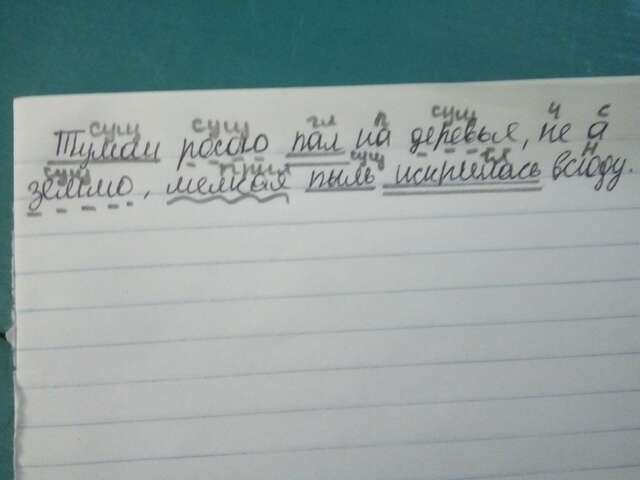 сущ сущ гл п сущ ч с
Туман росою пал на деревья, не а
сущ прил сущ гл н
землю, мелкая пыль искрилась всюду.